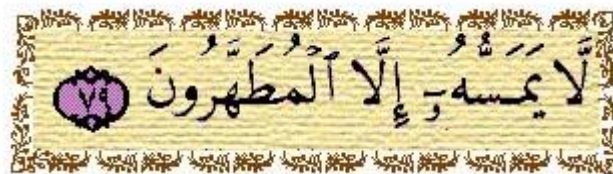 لَّا يَمَسُّهُۥٓ إِلَّا ٱلْمُطَهَّرُونَ ٧٩